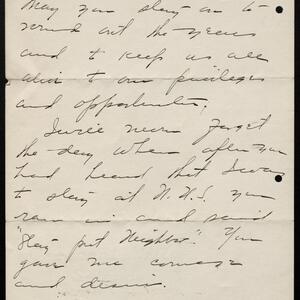 May you stay on to
round out the years
and to keep us all
alive to our privileges
and opportunities.
I will never forget
the day when after you
had heard that I was
to stay at N.H.S. you
ran in and said
"Stay put Neighbor". You
gave me courage
and desire.